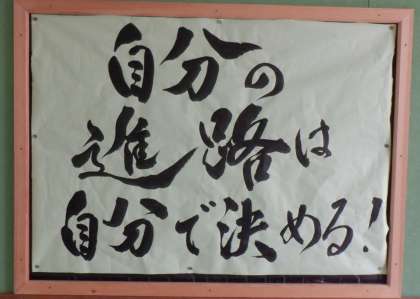 自分の
進路は
自分で決める!